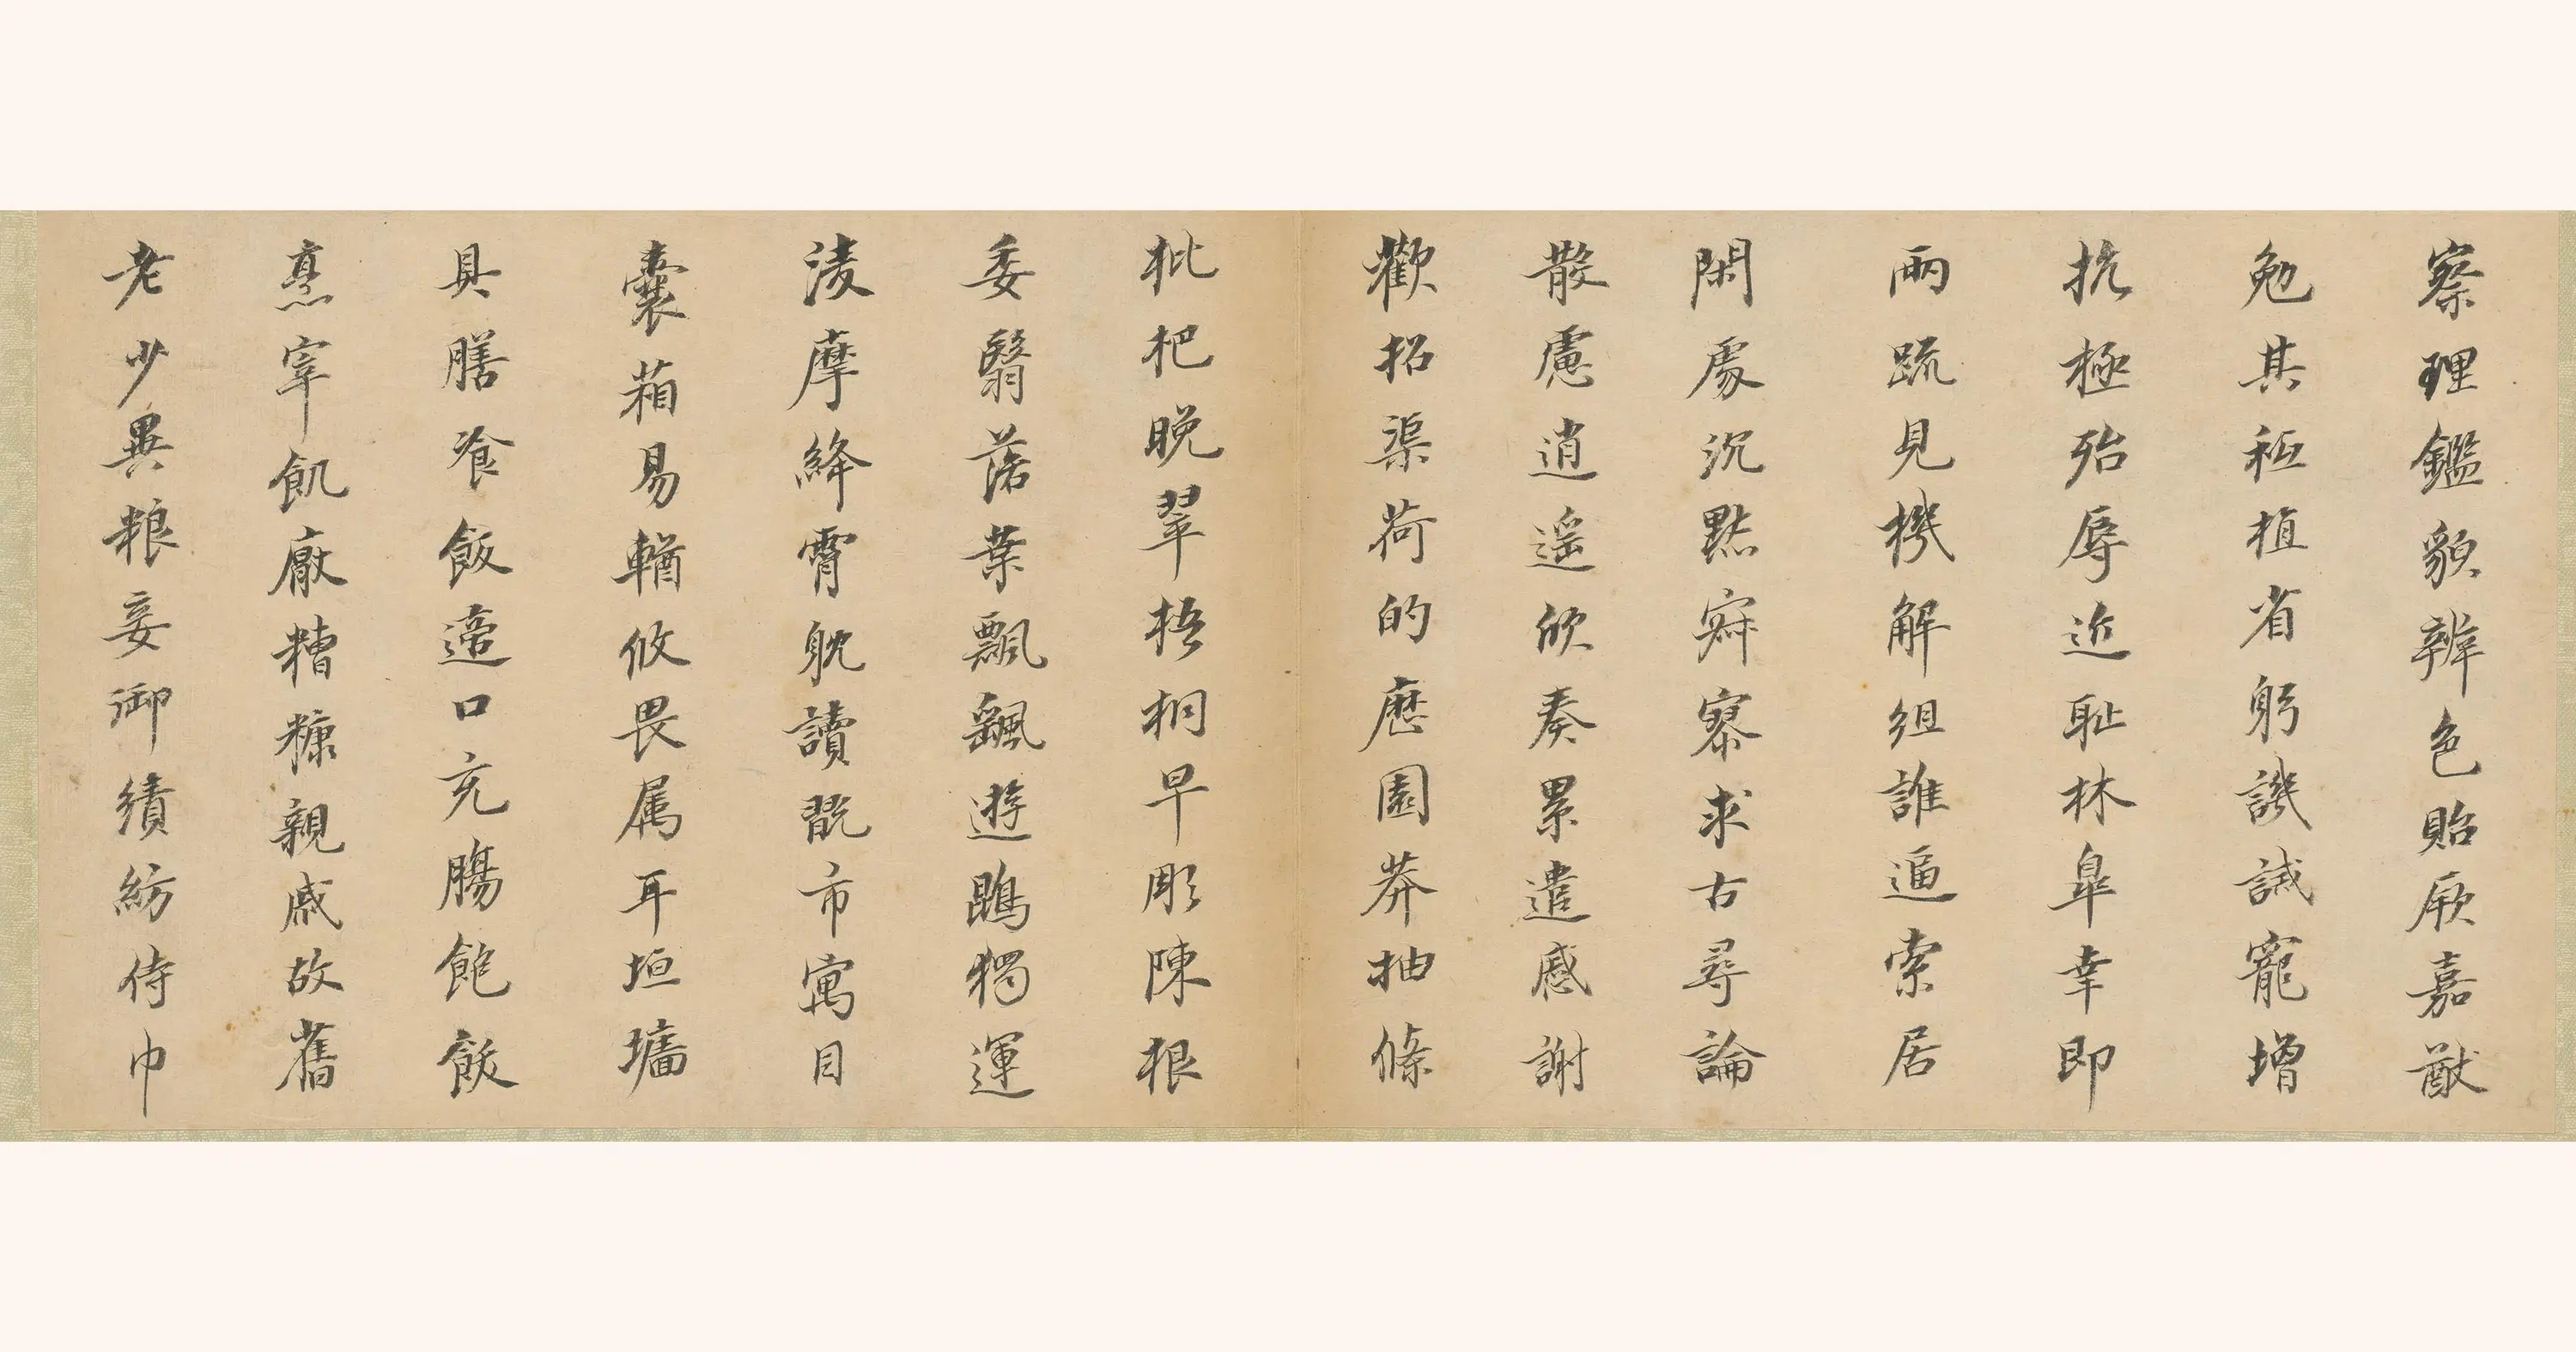 察理鑑貌辨色貽厥嘉猷
勉其祗植省躬譏誡寵增
抗極殆辱近耻林皐幸即
兩疏見機解組誰逼索居
閑處沉默寂寥求古尋論
散慮逍遥欣奏累遣慼謝
歡招渠荷的歷園莽抽條
枇杷晚翠梧桐早彫陳根
委翳落葉飄飖遊鵾獨運
淩摩絳霄耽讀翫市寓目
囊箱易輶攸畏属耳垣墻
具膳飡飯適口充腸飽飫
烹宰飢厭糟糠親戚故舊
老少異粮妾御績紡侍巾